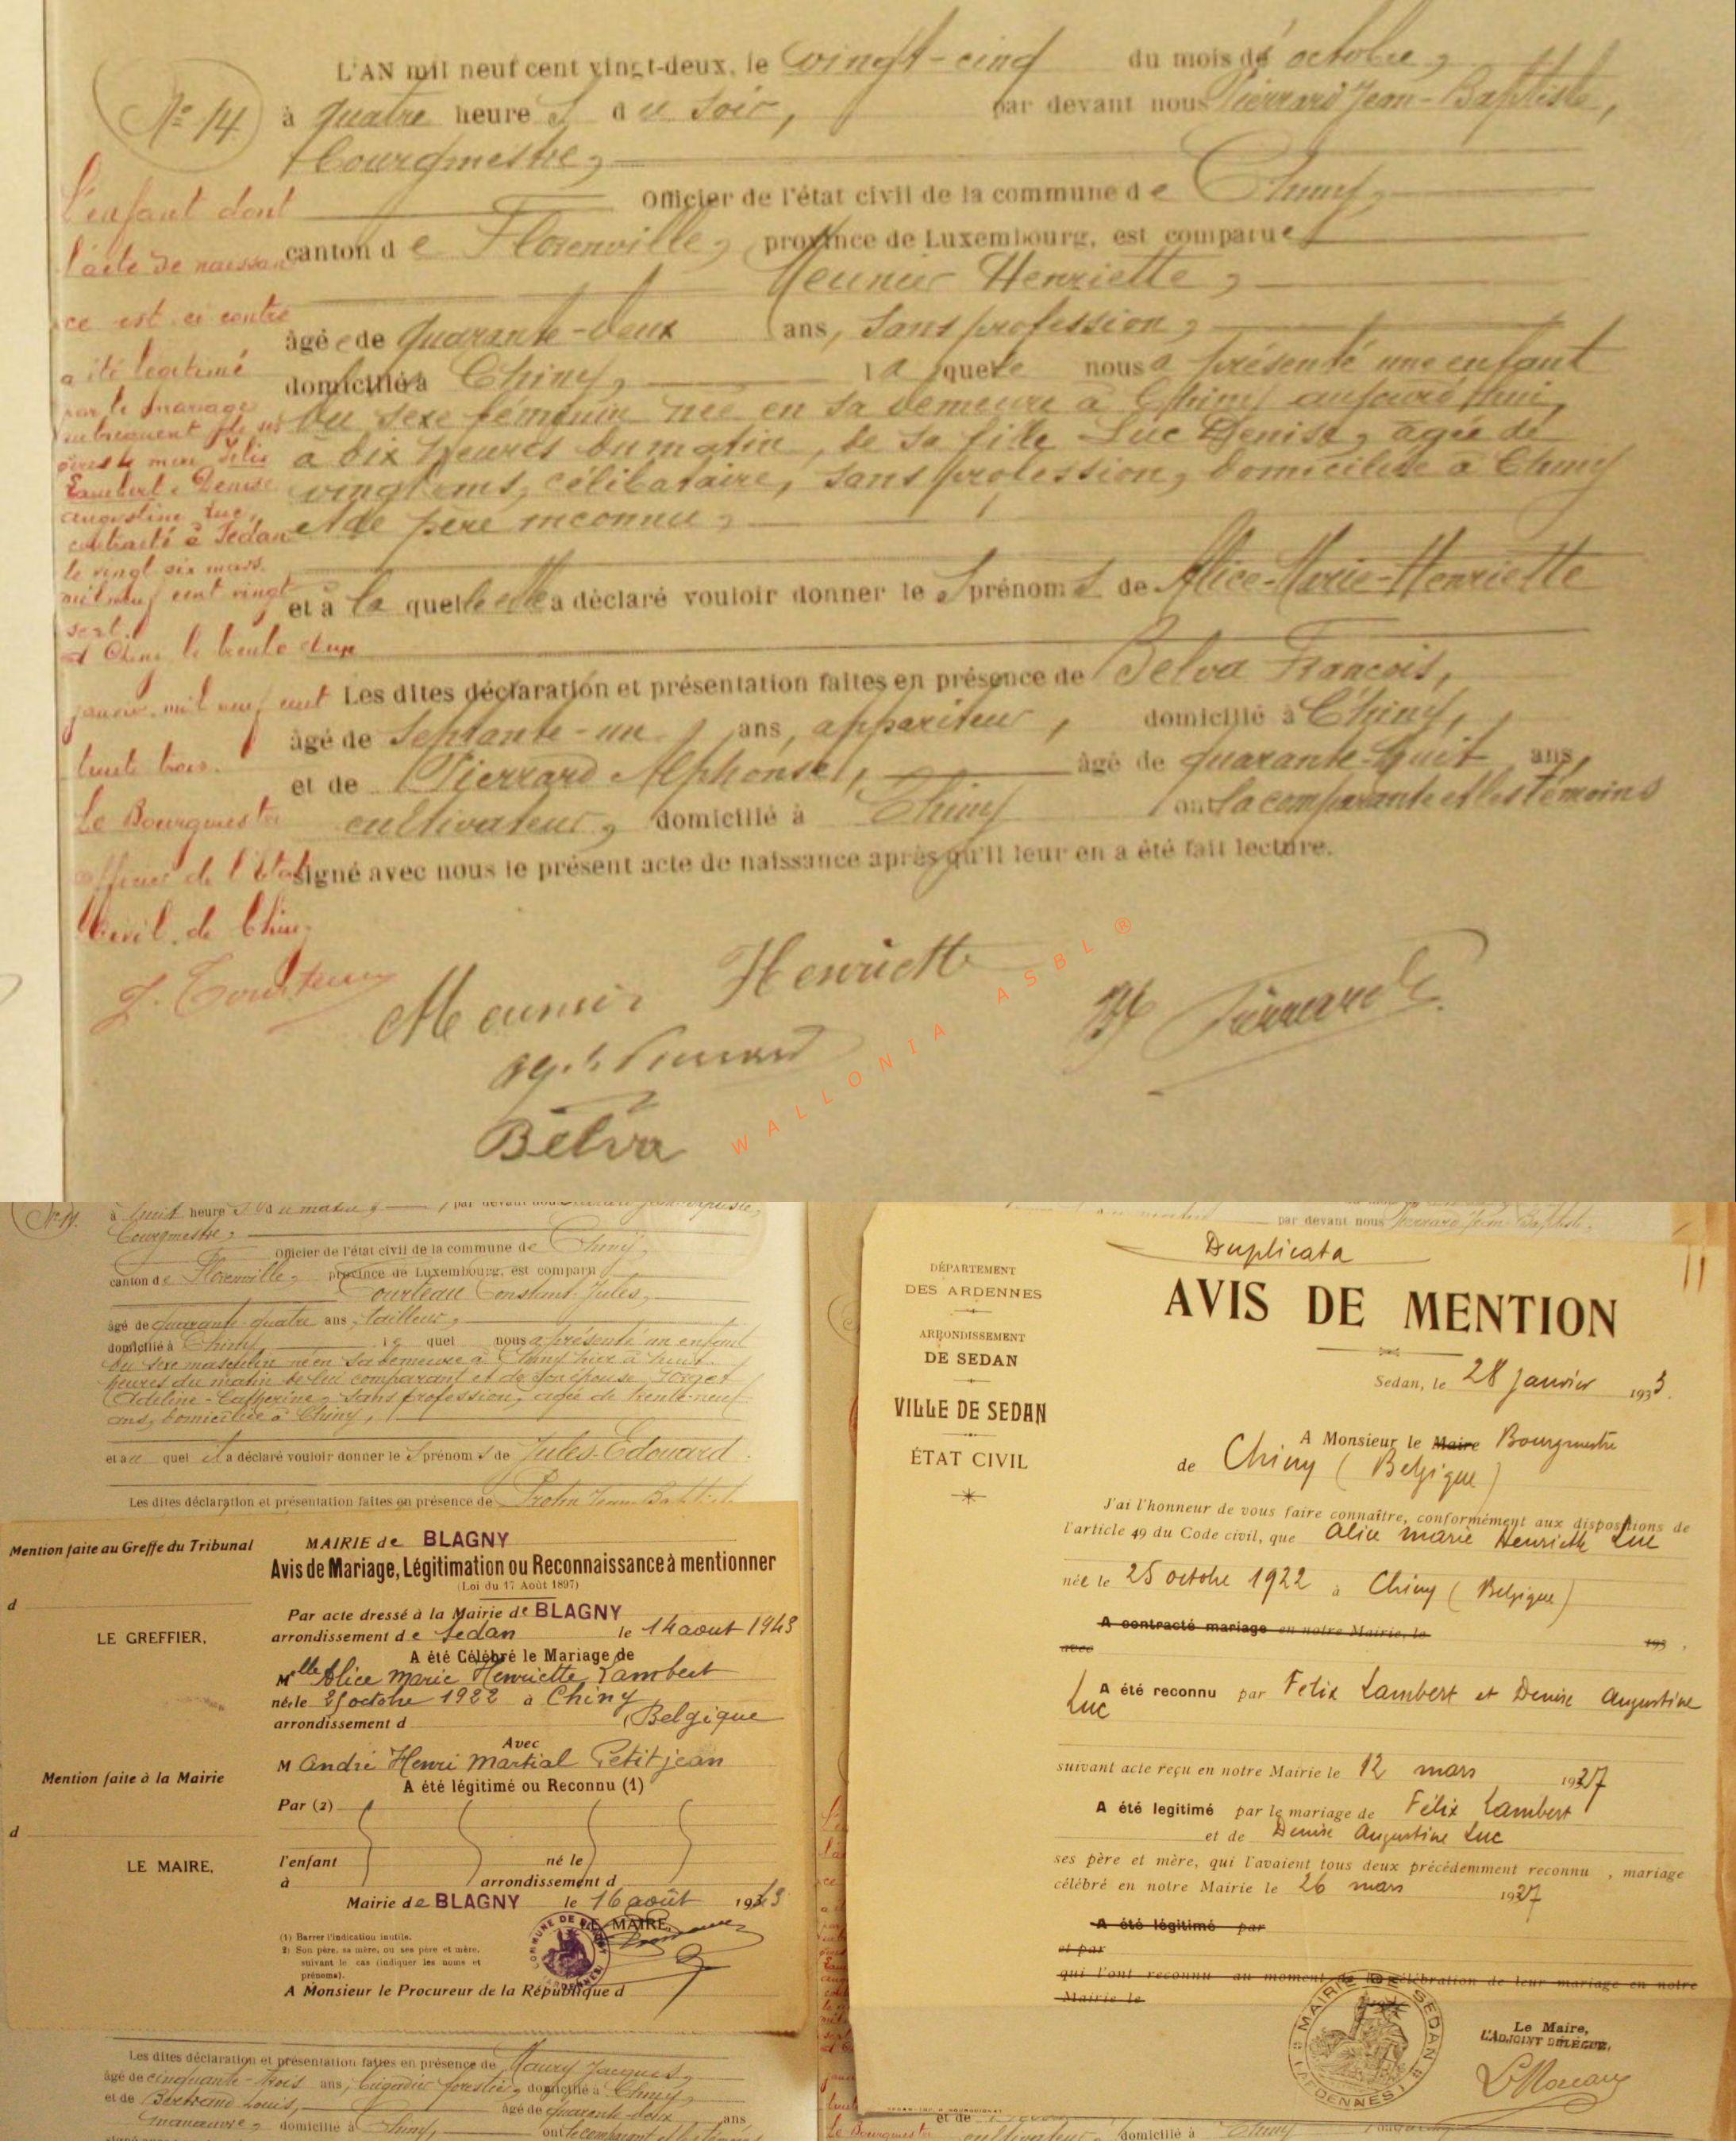 L'AN mil neuf cent vingt-deux, le vingt-cinq du mois de octobre,
N° 14
à quatre heures du soir, par devant nous Pierrard Jean-Baptiste,
bourgmestre,
Officier de l'état civil de la commune de Chiny,
canton de Florenville, province de Luxembourg, est comparue
Meunier Henriette,
âgée de quarante-deux ans, sans profession,
domicilié à Chiny, laquelle nous a présenté une enfant
du sexe féminin née en sa demeure à Chiny aujourd'hui,
à dix heures du matin, de sa fille Luc Denise, âgée de
vingt ans, célibataire, sans profession, domiciliée à Chiny
et de père inconnu,
et à laquelle elle a déclaré vouloir donner les prénoms de Alice-Marie-Henriette
Les dites déclaration et présentation faites en présence de Belva François,
âgé de septante-un ans, appariteur, domicilié à Chiny,
et de Pierrard Alphonse, âgé de quarante-huit ans,
cultivateur, domicilié à Chiny ont la comparante et les témoins
signé avec nous le présent acte de naissance après qu'il leur en a été fait lecture.
l'enfant dont
l'acte de naissan
ce est ci contre
a été légitimé
par le mariage
subséquent de ses
père et mère Félix
Lambert & Denise
Augustine Luc,
contracté à Sedan
le vingt six mars
mil neuf cent vingt
sept.
à Chiny le trente et un
janvier mil neuf cent
trente trois.
Le Bourgmestre
officier de l'Etat
Civil de Chiny.
Meunier Henriette
Pierrard
Belva
WALLONIA ASBL ®
à huit heures du matin, par devant nous
bourgmestre,
Officier de l'état civil de la commune de Chiny,
canton de Florenville, province de Luxembourg, est comparu
Courteau Constant-Jules,
âgé de quarante-quatre ans, tailleur,
domicilié à Chiny lequel nous a présenté un enfant
du sexe masculin né en sa demeure à Chiny hier à huit
heures du matin de lui comparant et de son épouse Forget
Adeline-Catherine, sans profession, âgée de trente-neuf
ans, domiciliée à Chiny,
et auquel il a déclaré vouloir donner les prénoms de Jules-Edouard.
Les dites déclaration et présentation faites en présence de
Mention faite au Greffe du Tribunal
d
LE GREFFIER,
Mention faite à la Mairie
d
LE MAIRE,
MAIRIE de BLAGNY
Avis de Mariage, Légitimation ou Reconnaissance à mentionner
(Loi du 17 Août 1897)
Par acte dressé à la Mairie de BLAGNY
arrondissement de Sedan le 14 aout 1943
A été Célébré le Mariage de
Melle Alice Marie Henriette Lambert
née le 25 octobre 1922 à Chiny
arrondissement d (Belgique
Avec
M André Henri Martial Petitjean
A été légitimé ou Reconnu (1)
Par (2)
l'enfant né le
à arrondissement d
Mairie de BLAGNY le 16 août 1943
LE MAIRE,
(1) Barrer l'indication inutile.
2) Son père, sa mère, ou ses père et mère,
suivant le cas (indiquer les noms et
prénoms).
A Monsieur le Procureur de la République d
Les dites déclaration et présentation faites en présence de Maury Jacques,
âgé de cinquante-trois ans, brigadier forestier, domicilié à Chiny,
et de Bertrand Louis, âgé de quarante-deux ans
manœuvre, domicilié à Chiny, ont le comparant et les témoins
par devant nous Pierrard Jean-Baptiste,
Duplicata
DÉPARTEMENT
DES ARDENNES
ARRONDISSEMENT
DE SEDAN
VILLE DE SEDAN
ÉTAT CIVIL
AVIS DE MENTION
Sedan, le 28 janvier 1933.
A Monsieur le Maire Bourgmestre
de Chiny (Belgique)
J'ai l'honneur de vous faire connaître, conformément aux dispositions de
l'article 49 du Code civil, que Alice Marie Henriette Luc
née le 25 octobre 1922 à Chiny (Belgique)
A contracté mariage en notre Mairie, le 193 .
avec
A été reconnu par Felix Lambert et Denise Augustine
Luc
suivant acte reçu en notre Mairie le 12 mars 1927
A été legitimé par le mariage de Félix Lambert
et de Denise Augustine Luc
ses père et mère, qui l'avaient tous deux précédemment reconnu , mariage
célébré en notre Mairie le 26 mars 1927
A été légitimé par
et par
qui l'ont reconnu au moment de la célébration de leur mariage en notre
Mairie le
MAIRIE DE SEDAN
(ARDENNES)
Le Maire,
L'ADJOINT DÉLÉGUÉ,
et de
cultivateur, domicilié à Chiny
Le Bourgmestre